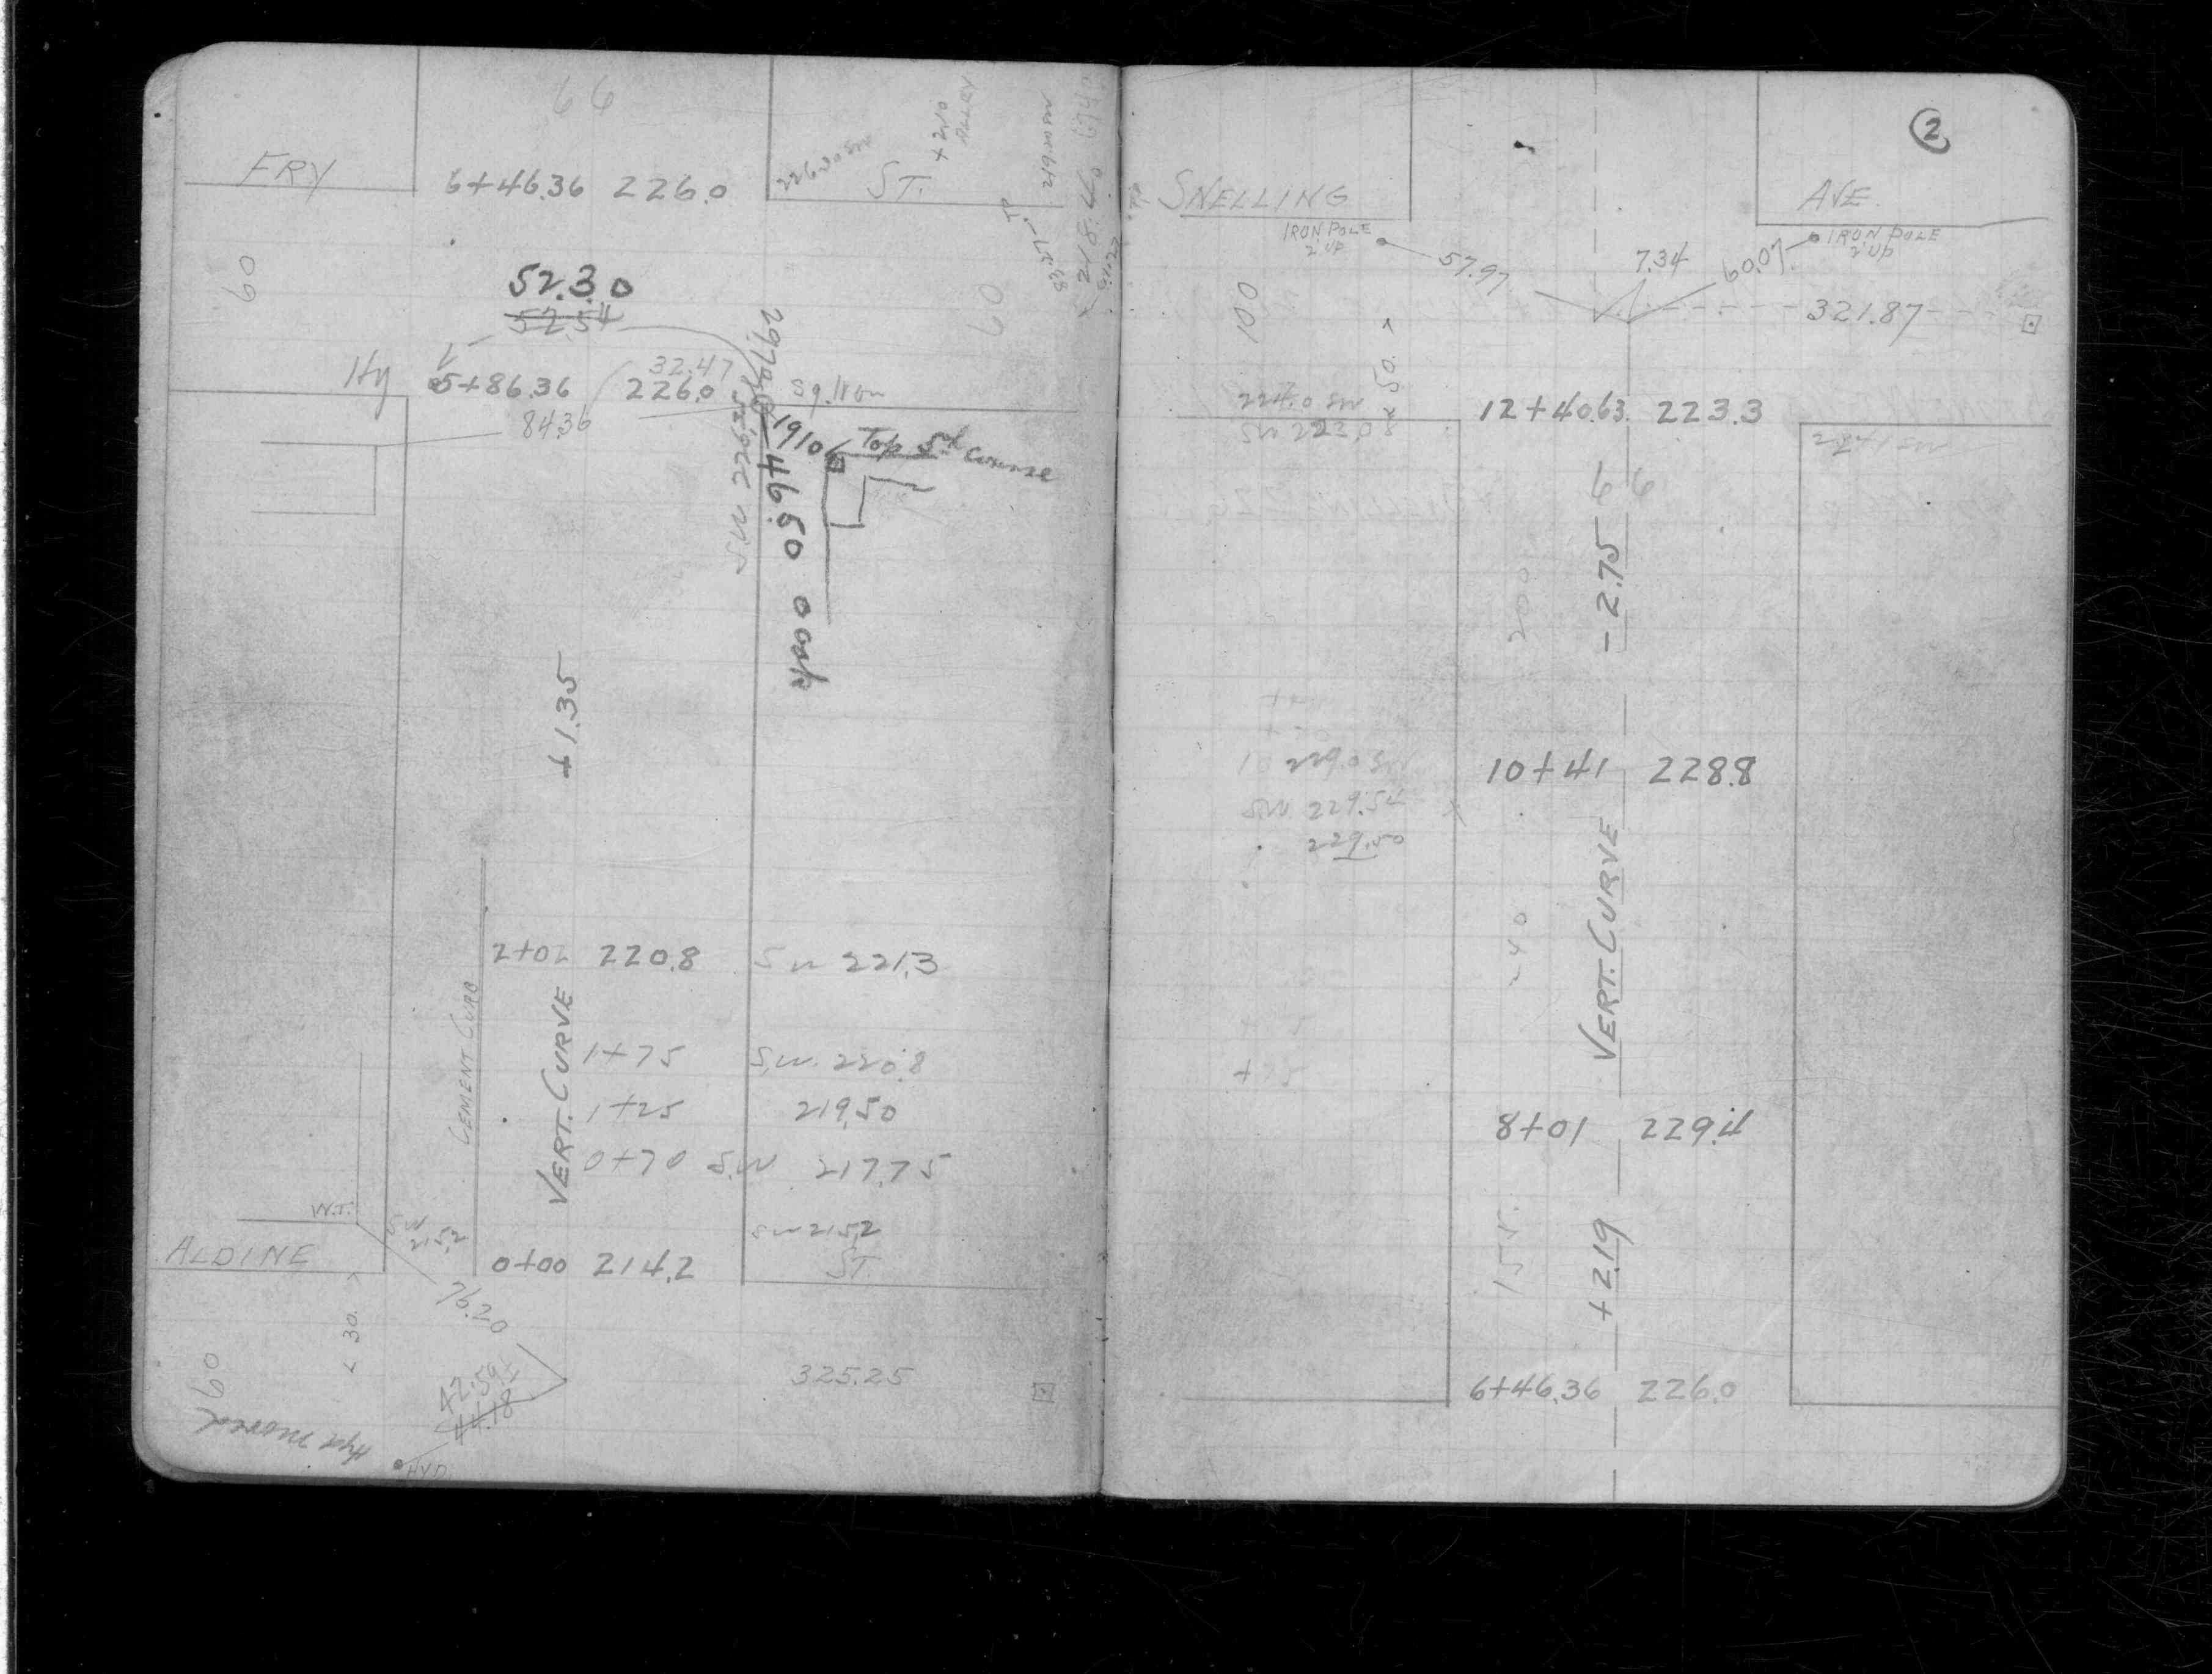 66
FRY 6+46.36 226.0 ST.
+ 210 ALLEY
60
60
52.30
52.54
32.47
Hy 5+86.36 226.0 Sq. Iron
84.36
19106 Top 5th Course
SW 226.25
4650
+1.35
2+02 220.8 SW 221.3
CEMENT CURB
VERT. CURVE
1+75 S.W. 220.8
1+25 219.50
0+70 S.W 217.75
W.T.
SW 215.2
SW 215.2
ALDINE 0+00 214.2 ST.
30.
76.20
60
42.59
44.18
325.25
Hyd moved
HYD
2
SNELLING AVE.
IRON POLE 2' UP
IRON POLE 2' UP
57.97
7.34
60.07
321.87
100
50.
224.0 SW
SW 223.08
12+40.63 223.3
66
-2.75
200
229.0 SW
10+41 228.8
SW 229.54
229.50
VERT. CURVE
240
8+01 229.4
155.
+2.19
6+46.36 226.0